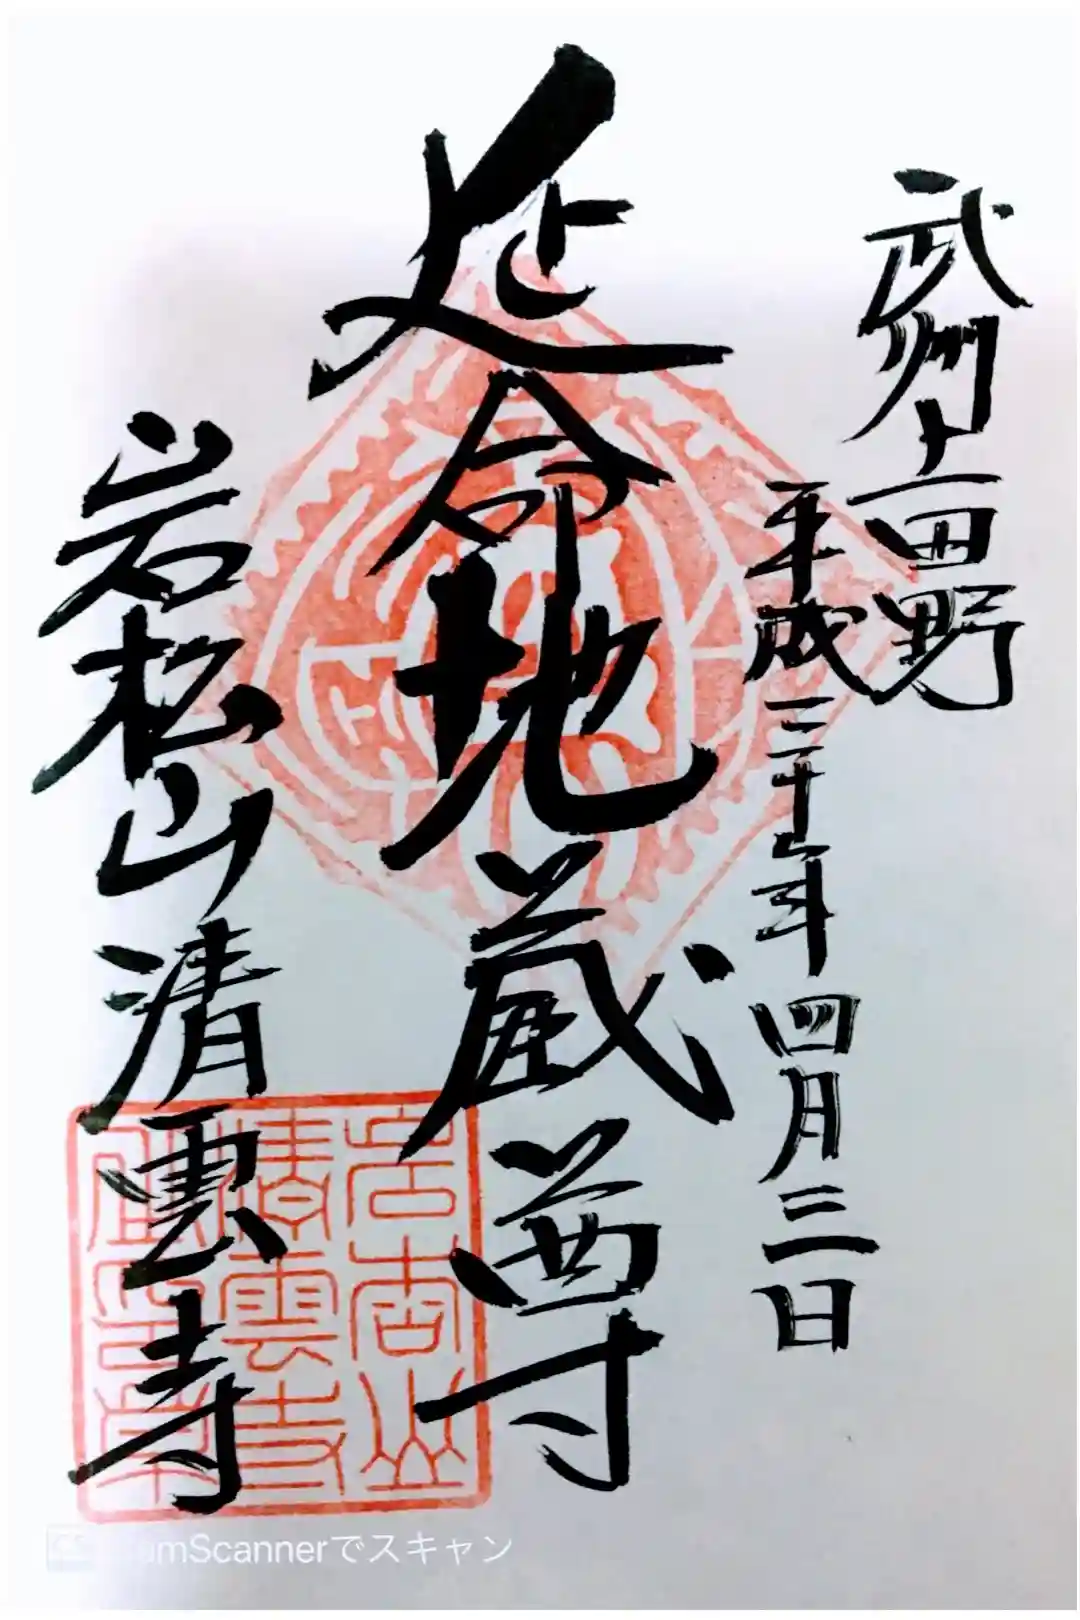 武州上田野
平成三十年四月三日
延命地蔵尊
岩松山清雲寺
岩松山
清雲寺
CamScannerでスキャン